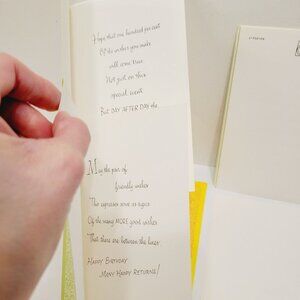 Hope that one hundred percent
Of the wishes you make
will come true
Not just on this
special event
But DAY AFTER DAY the
May the pair of
friendly wishes
This expresses serve as signs
Of the many MORE good wishes
That there are between the lines
HAPPY BIRTHDAY
MANY HAPPY RETURNS!